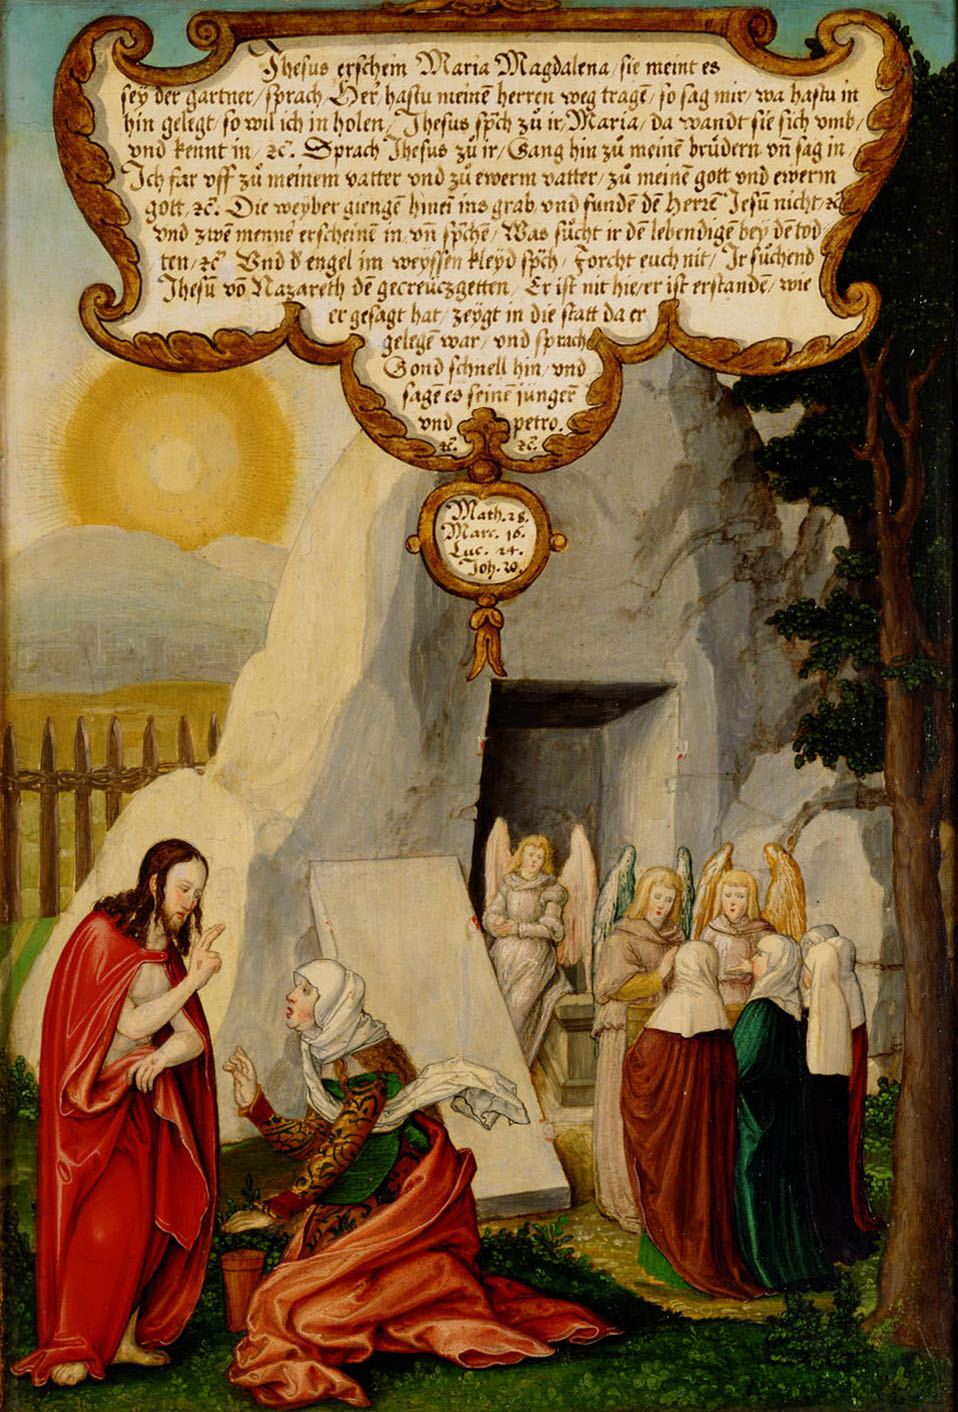 Jhesus erschein Maria Magdalena / sie meint es
sey der gartner / sprach / Her hastu meinē herren weg tragē / so sag mir / wa hastu in
hin gelegt / so wil ich in holen / Jhesus spch zů ir / Maria / da wandt sie sich vmb /
vnd kennt in / ꝛc̄. Sprach Jhesus zů ir / Gang hin zů meinē brůdern vn̄ sag in /
Ich far vff zů meinem vatter vnd zů ewerm vatter / zů meinē gott vnd ewerm
gott / ꝛc̄. Die weyber giengē hinei ins grab / vnd fundē dē Herrē Jesū nicht / ꝛc̄
vnd zwē menne erscheinē in / vn̄ spchē / Was sůcht ir dē lebendigē bey dē tod
ten / ꝛc̄ Vnd d engel im weyssen kleyd spch / Forcht euch nit / Ir sůchend
Jhesū vō Nazareth dē gecreuczgetten / Er ist nit hie / er ist erstandē / wie
er gesagt hat / zeygt in die statt da er
gelegē war / vnd sprach
Gond schnell hin / vnd
sagē es seinē jüngerē
vnd petro.
ꝛc̄. ꝛc̄.
Math. 28.
Marc. 16.
Luc. 24.
Joh. 20.